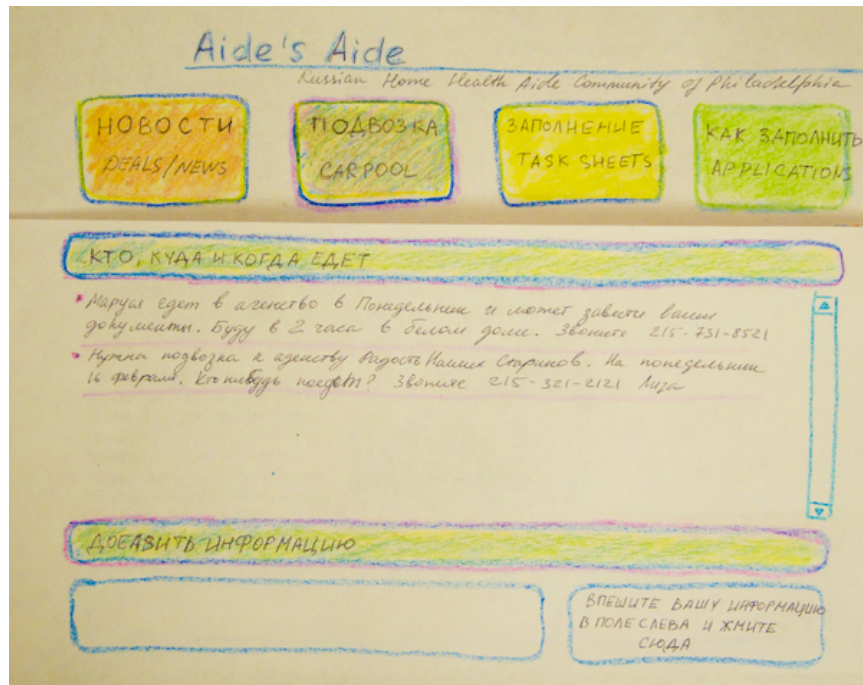 Aide's Aide
Russian Home Health Aide Community of Philadelphia
НОВОСТИ
DEALS/NEWS
ПОДВОЗКА
CARPOOL
ЗАПОЛНЕНИЕ
TASK SHEETS
КАК ЗАПОЛНИТЬ
APPLICATION
КТО, КУДА И КОГДА ЕДЕТ
Маруся едет в агенство в Понедельник и может завести ваши
документы. Буду в 2 часа в белом доме. Звоните 215-731-8521
Нужна подвозка к аденству Радость Наших Стариков. На понедельник
16 февраля. Кто нибудь поедет? Звоните 215-321-2121 Лиза
ДОБАВИТЬ ИНФОРМАЦИЮ
ВПЕШИТЕ ВАШУ ИНФОРМАЦИЮ
В ПОЛЕ СЛЕВА И ЖМИТЕ
СЮДА